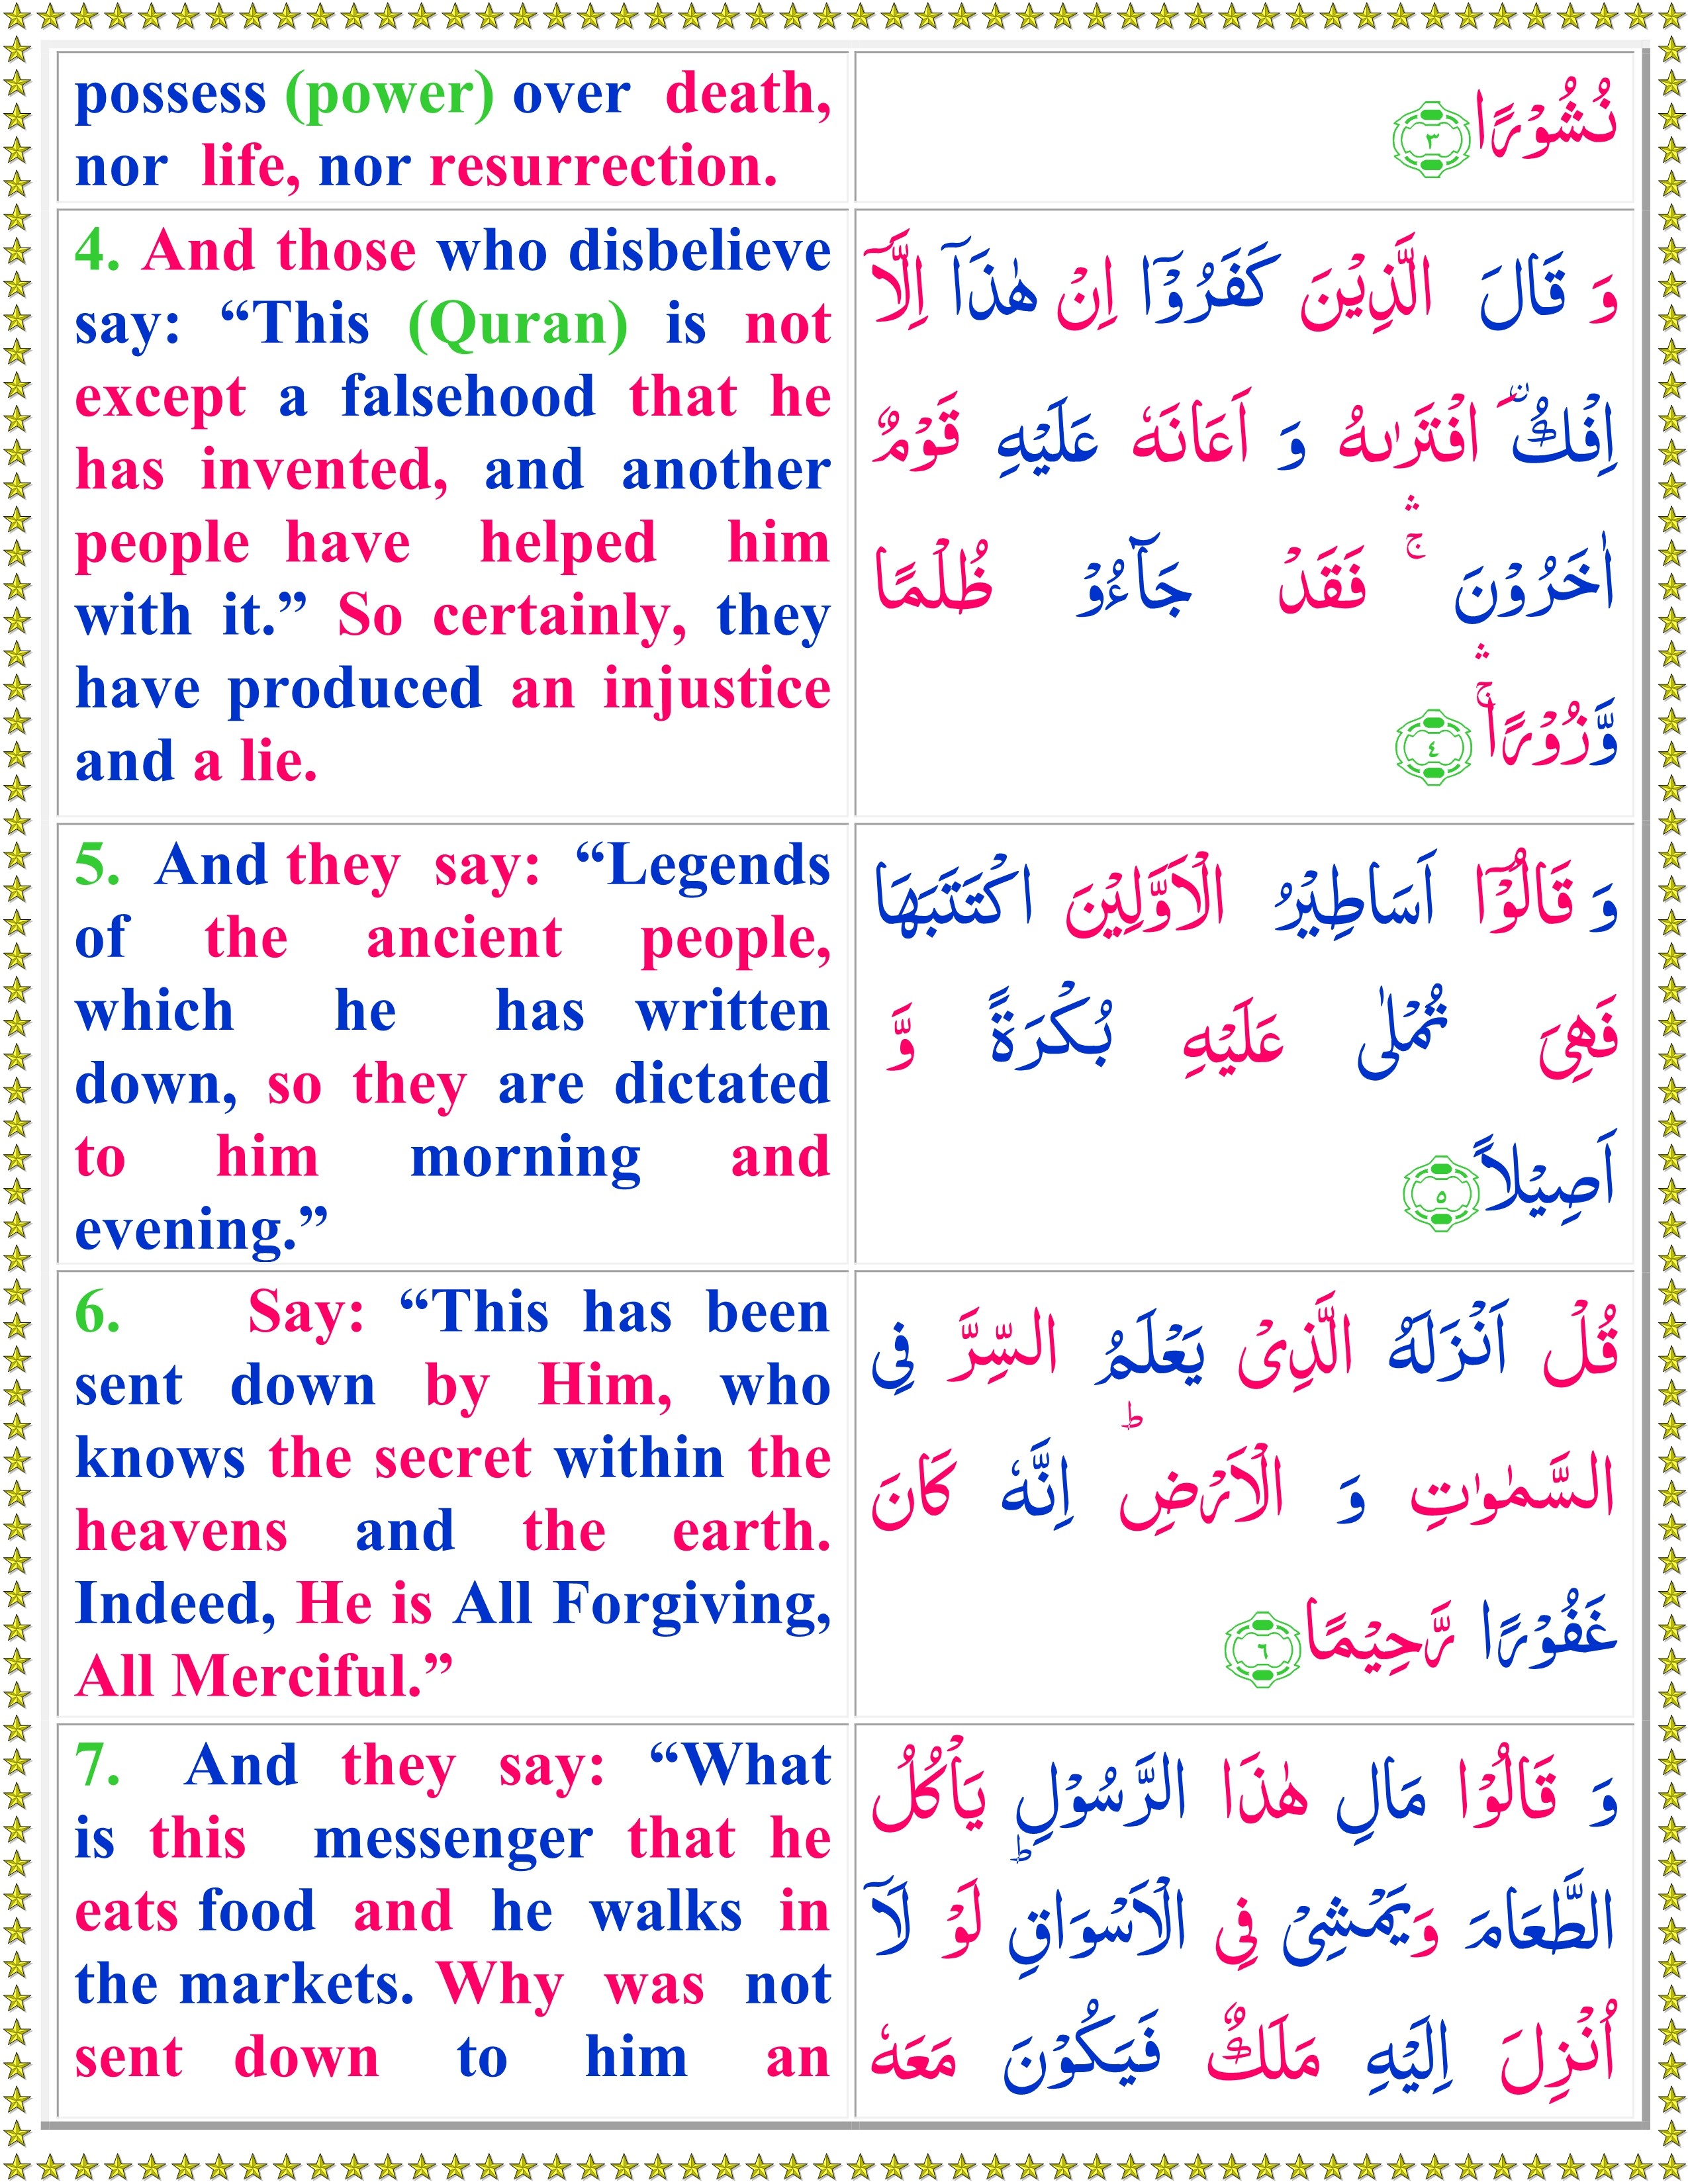 possess (power) over death,
nor life, nor resurrection.
نُشُوْرًا ﴿٣﴾
4. And those who disbelieve
say: “This (Quran) is not
except a falsehood that he
has invented, and another
people have helped him
with it.” So certainly, they
have produced an injustice
and a lie.
وَ قَالَ الَّذِيْنَ كَفَرُوْۤا اِنْ هٰذَاۤ اِلَّاۤ
اِفْكُ ۨافْتَرٰىهُ وَ اَعَانَهٗ عَلَيْهِ قَوْمٌ
اٰخَرُوْنَ ۛۚ فَقَدْ جَآءُوْ ظُلْمًا
وَّزُوْرًا ۛۚ ﴿٤﴾
5. And they say: “Legends
of the ancient people,
which he has written
down, so they are dictated
to him morning and
evening.”
وَ قَالُوْۤا اَسَاطِيْرُ الْاَوَّلِيْنَ اكْتَتَبَهَا
فَهِىَ تُمْلٰى عَلَيْهِ بُكْرَةً وَّ
اَصِيْلاً ﴿٥﴾
6. Say: “This has been
sent down by Him, who
knows the secret within the
heavens and the earth.
Indeed, He is All Forgiving,
All Merciful.”
قُلْ اَنْزَلَهُ الَّذِىْ يَعْلَمُ السِّرَّ فِى
السَّمٰوٰتِ وَ الْاَرْضِ ؕ اِنَّهٗ كَانَ
غَفُوْرًا رَّحِيْمًا ﴿٦﴾
7. And they say: “What
is this messenger that he
eats food and he walks in
the markets. Why was not
sent down to him an
وَ قَالُوْا مَالِ هٰذَا الرَّسُوْلِ يَاْكُلُ
الطَّعَامَ وَيَمْشِىْ فِى الْاَسْوَاقِ ؕ لَوْ لَاۤ
اُنْزِلَ اِلَيْهِ مَلَكٌ فَيَكُوْنَ مَعَهٗ